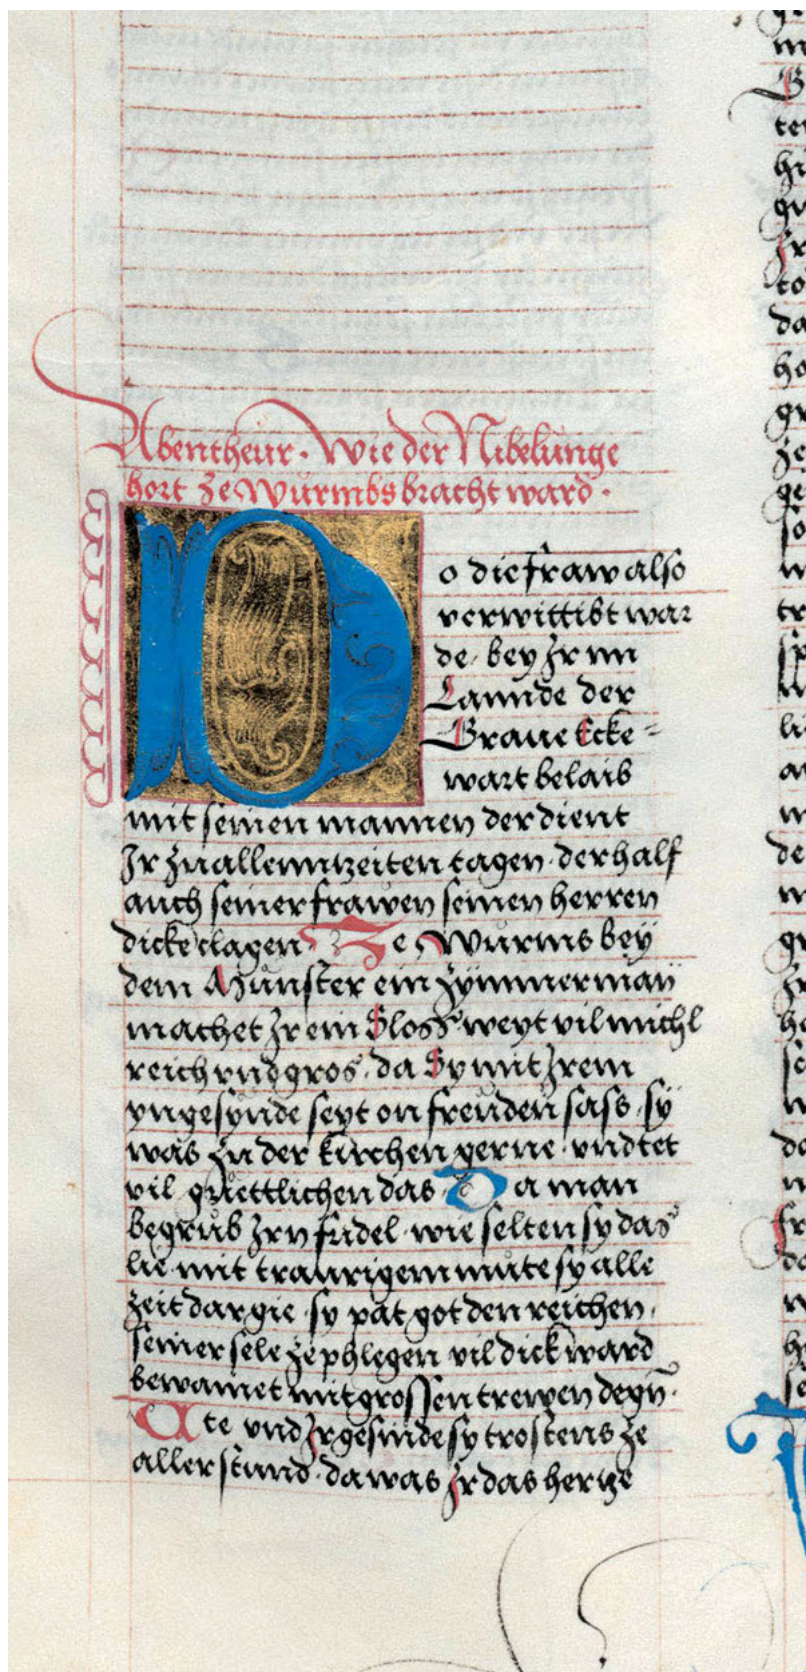 Abentheur · Wie der Nibelunge
hort ze Wurmbs bracht ward ·
Do die fraw also
verwittibt war
de · bey Ir im
Lannde der
Graue Ecke=
wart belaib
mit seinen mannen der dient
Ir zu allenntzeiten tagen · der half
auch seiner frawen seinen herren
dicke clagen · Ze Wurms bey
dem Munster ein zymmerman
machet Ir ein Sloss weyt vil michl
reich vnd gros · da Sy mit Irem
yngesynde seyt on freuden sass · sy
was zu der kirchen gerne · vnd tet
vil guettlichen das · Da man
begrub Irn fridel · wie selten sy das
lie · mit traurigem mute sy alle
zeit dar gie · sy pat got den reichen ·
seiner sele ze phlegen vil dick ward
bewainet mit grossen trewen degn̄ ·
Ute vnd Ir gesinde sy trostens ze
aller stund · da was Ir das hertze